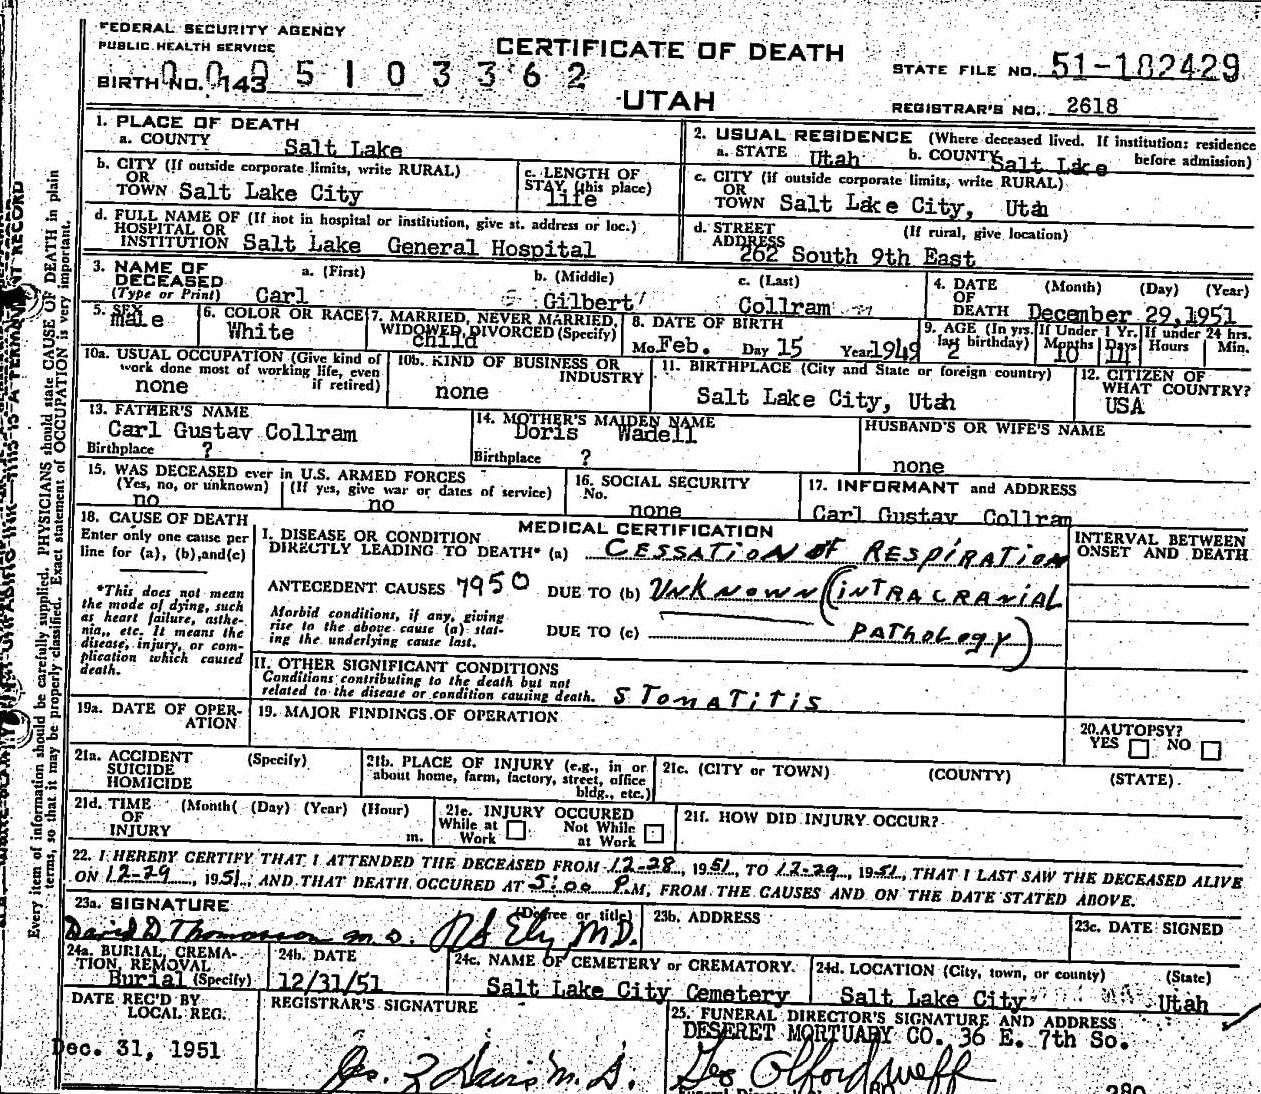 FEDERAL SECURITY AGENCY
PUBLIC HEALTH SERVICE
CERTIFICATE OF DEATH
UTAH
BIRTH NO. 143
0005103362
STATE FILE NO. 51-182429
REGISTRAR'S NO. 2618
1. PLACE OF DEATH
a. COUNTY Salt Lake
b. CITY (If outside corporate limits, write RURAL)
OR
TOWN Salt Lake City
c. LENGTH OF
STAY (this place)
life
d. FULL NAME OF (If not in hospital or institution, give st. address or loc.)
HOSPITAL OR
INSTITUTION Salt Lake General Hospital
2. USUAL RESIDENCE (Where deceased lived. If institution: residence
before admission)
a. STATE Utah b. COUNTY Salt Lake
c. CITY (If outside corporate limits, write RURAL)
OR
TOWN Salt Lake City, Utah
d. STREET (If rural, give location)
ADDRESS
262 South 9th East
3. NAME OF
DECEASED
(Type or Print)
a. (First) Carl
b. (Middle) Gilbert
c. (Last) Collram
4. DATE (Month) (Day) (Year)
OF
DEATH December 29,1951
5. SEX
male
6. COLOR OR RACE
White
7. MARRIED, NEVER MARRIED,
WIDOWED, DIVORCED (Specify)
child
8. DATE OF BIRTH
Mo. Feb. Day 15 Year 1949
9. AGE (In yrs.
last birthday)
2
If Under 1 Yr.
Months Days
10 14
If under 24 hrs.
Hours Min.
10a. USUAL OCCUPATION (Give kind of
work done most of working life, even
if retired)
none
10b. KIND OF BUSINESS OR
INDUSTRY
none
11. BIRTHPLACE (City and State or foreign country)
Salt Lake City, Utah
12. CITIZEN OF
WHAT COUNTRY?
USA
13. FATHER'S NAME
Carl Gustav Collram
Birthplace ?
14. MOTHER'S MAIDEN NAME
Doris Wadell
Birthplace ?
HUSBAND'S OR WIFE'S NAME
none
15. WAS DECEASED ever in U.S. ARMED FORCES
(Yes, no, or unknown) (If yes, give war or dates of service)
no no
16. SOCIAL SECURITY
No.
none
17. INFORMANT and ADDRESS
Carl Gustav Collram
18. CAUSE OF DEATH
Enter only one cause per
line for (a), (b), and (c)
*This does not mean
the mode of dying, such
as heart failure, asthe-
nia,, etc. It means the
disease, injury, or com-
plication which caused
death.
MEDICAL CERTIFICATION
I. DISEASE OR CONDITION
DIRECTLY LEADING TO DEATH* (a) CESSATION OF RESPIRATION
ANTECEDENT CAUSES 7950 DUE TO (b) UNKNOWN (INTRACRANIAL
Morbid conditions, if any, giving
rise to the above cause (a) stat-
ing the underlying cause last.
DUE TO (c) PATHOLOGY)
II. OTHER SIGNIFICANT CONDITIONS
Conditions contributing to the death but not
related to the disease or condition causing death. STOMATITIS
INTERVAL BETWEEN
ONSET AND DEATH
19a. DATE OF OPER-
ATION
19. MAJOR FINDINGS OF OPERATION
20. AUTOPSY?
YES NO
21a. ACCIDENT (Specify)
SUICIDE
HOMICIDE
21b. PLACE OF INJURY (e.g., in or
about home, farm, factory, street, office
bldg., etc.)
21c. (CITY or TOWN) (COUNTY) (STATE)
21d. TIME (Month( (Day) (Year) (Hour)
OF
INJURY m.
21e. INJURY OCCURED
While at Work Not While at Work
21f. HOW DID INJURY OCCUR?
22. I HEREBY CERTIFY THAT I ATTENDED THE DECEASED FROM 12-28, 1951, TO 12-29, 1951, THAT I LAST SAW THE DECEASED ALIVE
ON 12-29, 1951, AND THAT DEATH OCCURED AT 5:00 P.M, FROM THE CAUSES AND ON THE DATE STATED ABOVE.
23a. SIGNATURE (Degree or title)
David D. Thomasson M.D. Ely MD.
23b. ADDRESS
23c. DATE SIGNED
24a. BURIAL, CREMA-
TION, REMOVAL
Burial (Specify)
24b. DATE
12/31/51
24c. NAME OF CEMETERY or CREMATORY.
Salt Lake City Cemetery
24d. LOCATION (City, town, or county) (State)
Salt Lake City Utah
DATE REC'D BY
LOCAL REG.
Dec. 31, 1951
REGISTRAR'S SIGNATURE
25. FUNERAL DIRECTOR'S SIGNATURE AND ADDRESS
DESERET MORTUARY CO. 36 E. 7th So.
280
Every item of information should be carefully supplied. PHYSICIANS should state CAUSE OF DEATH in plain
terms, so that it may be properly classified. Exact statement of OCCUPATION is very important.